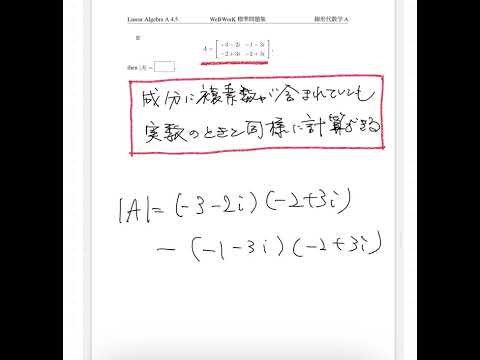 Linear Algebra A 4.5 WeBWorK 標準問題集 線形代数学 A
If
A = [ -3 - 2i -1 - 3i
-2 + 3i -2 + 3i ] ,
then |A| =
成分に複素数が含まれていても
実数のときと同様に計算できる
|A| = (-3-2i)(-2+3i)
- (-1-3i)(-2+3i)